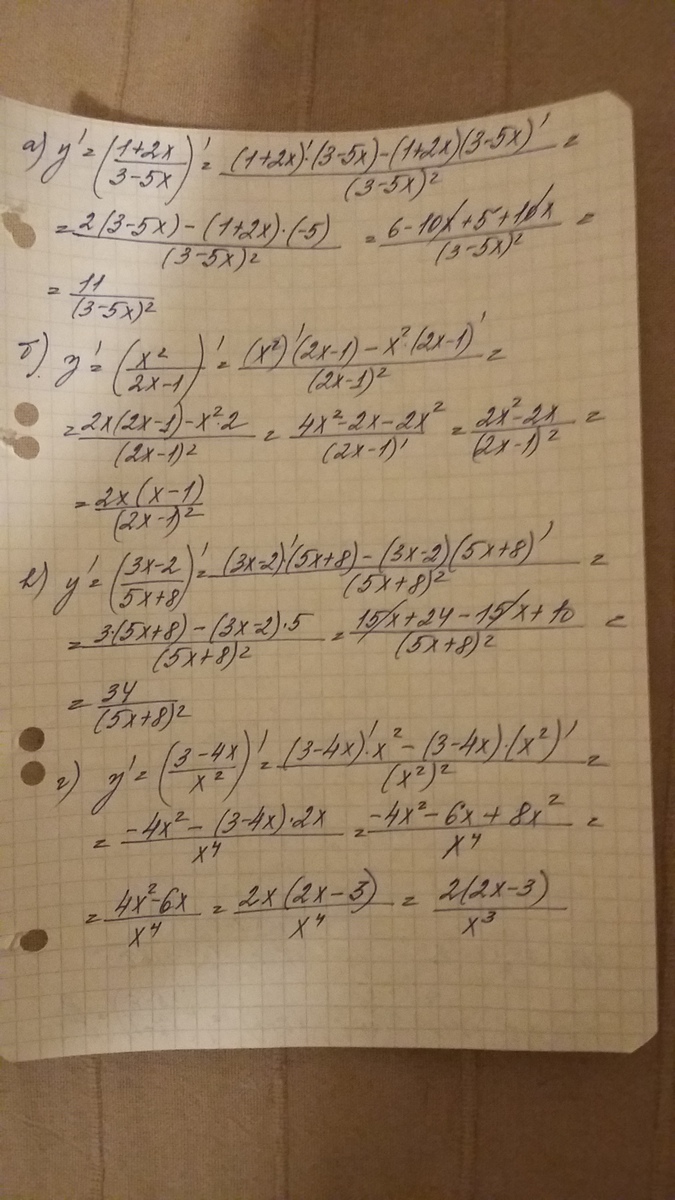 а) y' = ((1+2x)/(3-5x))' = ((1+2x)'·(3-5x)-(1+2x)(3-5x)')/(3-5x)² =
= (2(3-5x)-(1+2x)·(-5))/(3-5x)² = (6-10x+5+10x)/(3-5x)² =
= 11/(3-5x)²
б). y' = (x²/(2x-1))' = ((x²)'(2x-1)-x²·(2x-1)')/(2x-1)² =
= (2x(2x-1)-x²·2)/(2x-1)² = (4x²-2x-2x²)/(2x-1)' = (2x²-2x)/(2x-1)² =
= 2x(x-1)/(2x-1)²
в) y' = ((3x-2)/(5x+8))' = ((3x-2)'(5x+8)-(3x-2)(5x+8)')/(5x+8)² =
= (3·(5x+8)-(3x-2)·5)/(5x+8)² = (15x+24-15x+10)/(5x+8)² =
= 34/(5x+8)²
г) y' = ((3-4x)/x²)' = ((3-4x)'·x²-(3-4x)·(x²)')/(x²)² =
= (-4x²-(3-4x)·2x)/x⁴ = (-4x²-6x+8x²)/x⁴ =
= (4x²-6x)/x⁴ = 2x(2x-3)/x⁴ = 2(2x-3)/x³